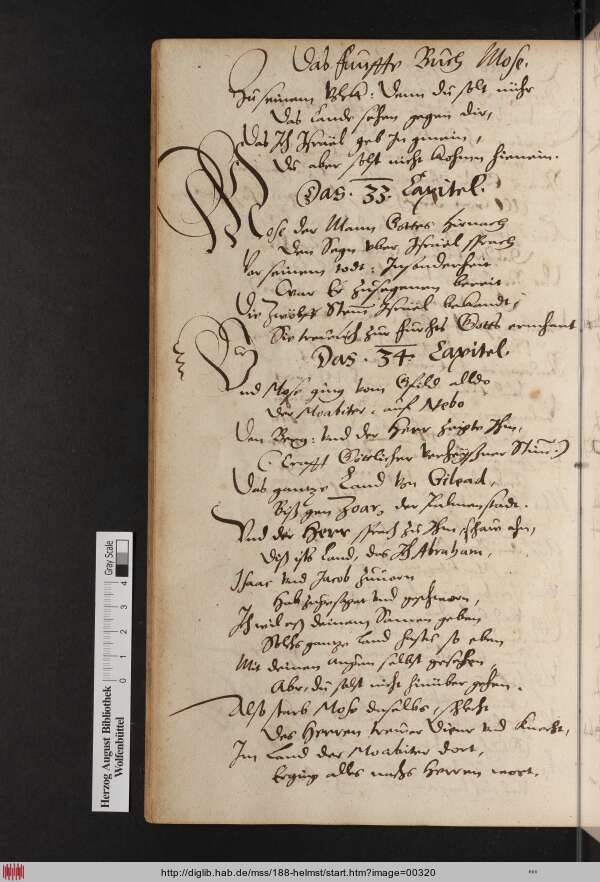 Das fünffte Buch Mose.
Zu seinem Volck: Denn du solt nuhr
Das Lande sehen gegen dir,
das Ich Israel geb In gmein,
Du aber solst nicht kohmen hienein.
Das .33. Capitel.
Mose der Mann Gottes hirnach
Den Segn vber Israel sprach
Vor seinem todt: Insonderheit
War Er zusegenen bereit
Die Zwölff Stem Israel bekandt,
Sie treulich zur furcht Gotts ermhant.
Das .34. Capitel.
Vnd Mose ging vom Gfild alldo
Der Moabiter, auf Nebo
Den Berg: Vnd der Herr zeigte Ihm,
(: Crafft Göttlicher verheyssner Stim :)
Das gantze Land von Gilead,
Biß gen Zoar, der Palmenstadt.
Vnd der Herr sprach zu Ihm, schaw ahn,
Diß ists Land, das Ich Abraham,
Isaac vnd Jacob zuuorn
Hab zugesagt vnd geschworn,
Ich wil es deinem Samen geben
Solchs gantze Land hastu so eben
Mit deinen augen selbst gesehen,
Aber du solst nicht hinüber gehen.
Also starb Mose daselbs, schlecht
Des Herren trewer Diener vnd Knecht,
Im Land der Moabiter dort,
Erging alles nachs Herren wort.
Herzog August Bibliothek
Wolfenbüttel
Gray Scale
0 1 2 3 4
http://diglib.hab.de/mss/188-helmst/start.htm?image=00320